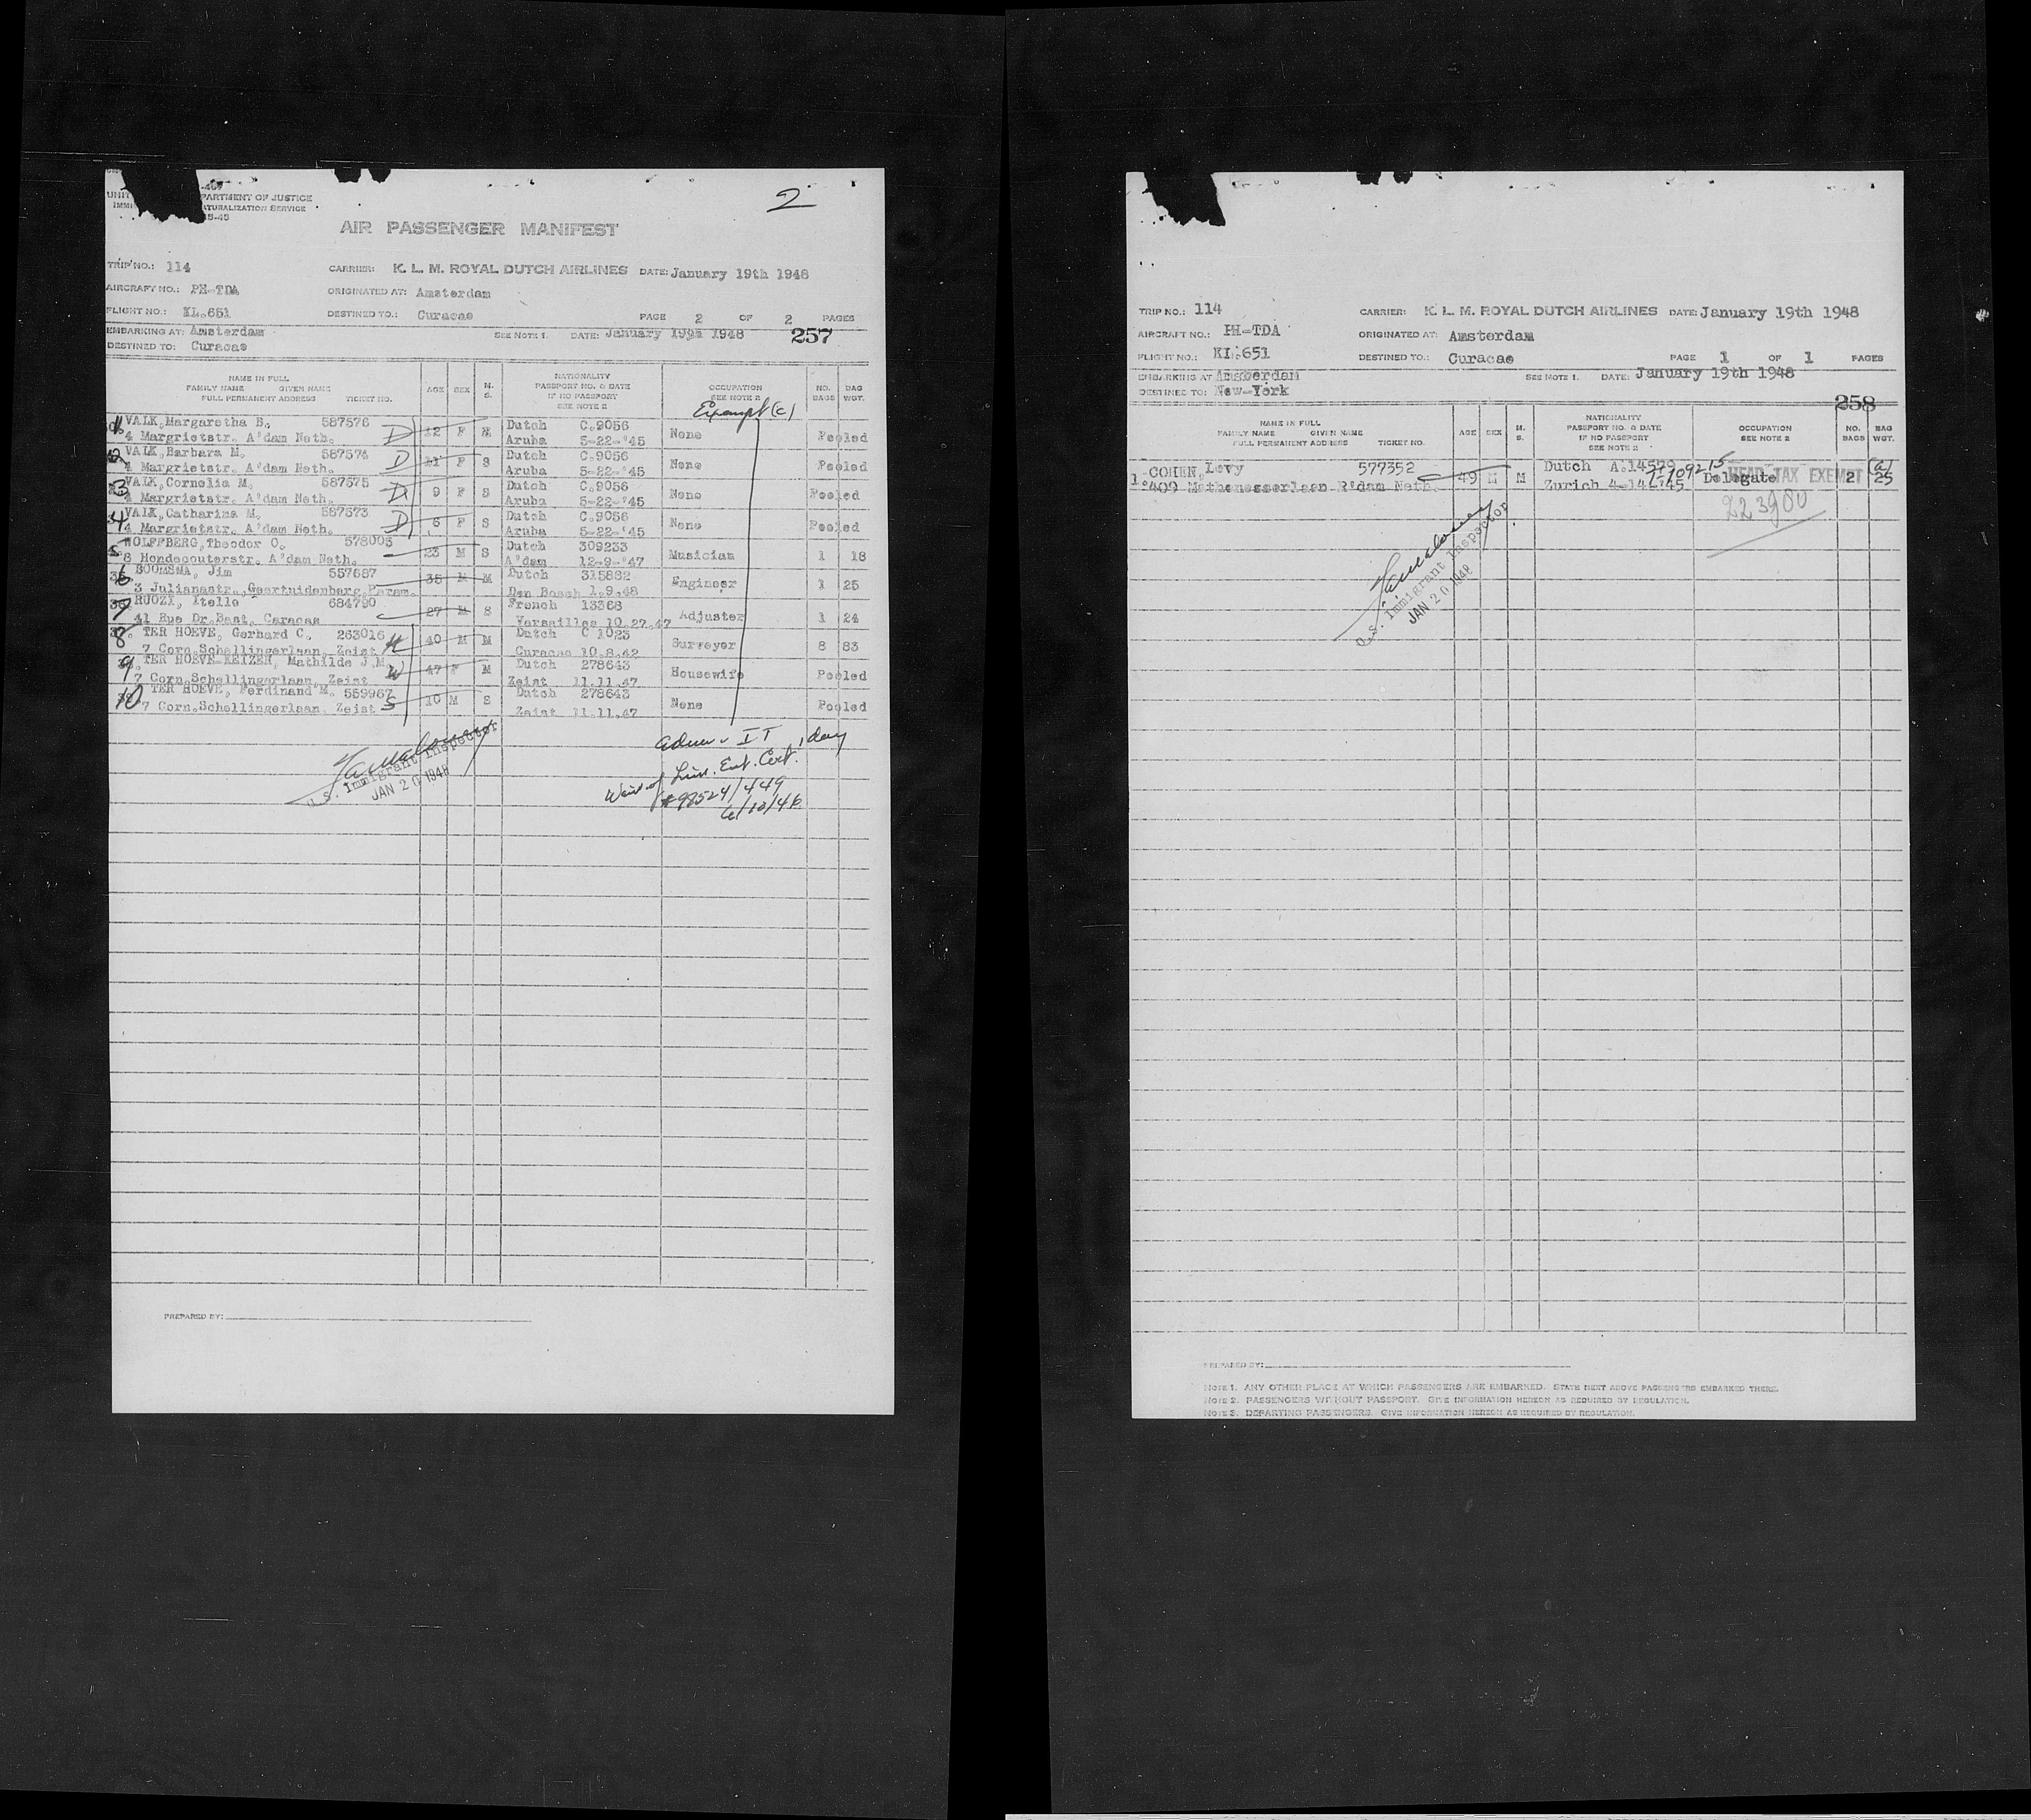 2
PARTMENT OF JUSTICE
ATURALIZATION SERVICE
AIR PASSENGER MANIFEST
TRIP NO.: 114 CARRIER: K. L. M. ROYAL DUTCH AIRLINES DATE: January 19th 1948
AIRCRAFT NO.: PH-TDA ORIGINATED AT: Amsterdam
FLIGHT NO.: KL.651 DESTINED TO.: Curacao PAGE 2 OF 2 PAGES
EMBARKING AT: Amsterdam SEE NOTE 1. DATE: January 19th 1948 257
DESTINED TO: Curacao
NAME IN FULL
FAMILY NAME GIVEN NAME
FULL PERMANENT ADDRESS TICKET NO.
AGE SEX M. S.
NATIONALITY
PASSPORT NO. & DATE
IF NO PASSPORT
SEE NOTE 2
OCCUPATION
SEE NOTE 2
NO. BAGS
BAG WGT.
Exempt (c)
1 VALK, Margaretha B. 587576 D 12 F Dutch C.9056 None Pooled
4 Margrietstr. A'dam Neth. Aruba 5-22-'45
2 VALK, Barbara M. 587574 D 11 F S Dutch C.9056 None Pooled
4 Margrietstr. A'dam Neth. Aruba 5-22-'45
3 VALK, Cornelia M. 587575 D 9 F S Dutch C.9056 None Pooled
4 Margrietstr. A'dam Neth. Aruba 5-22-'45
4 VALK, Catharina M. 587573 D 6 F S Dutch C.9056 None Pooled
4 Margrietstr. A'dam Neth. Aruba 5-22-'45
5 WOLFFBERG, Theodor O. 578003 23 M S Dutch 309233 Musician 1 18
8 Hondecouterstr. A'dam Neth. A'dam 12-9-'47
6 BOOMSMA, Jim 557687 35 M M Dutch 315882 Engineer 1 25
3 Julianastr., Geertuidenberg, Den Bosch 1.9.48
7 RUOZI, Itello 684790 27 M S French 13368 Adjuster 1 24
41 Rue Dr. Bast, Caracas Versailles 10.27.47
8 TER HOEVE, Gerhard C. 263016 H 40 M M Dutch C 1023 Surveyor 8 83
7 Corn.Schellingerlaan, Zeist Curacao 10.8.42
9 TER HOEVE-KEIZER, Mathilde J.M. W 47 F M Dutch 278643 Housewife Pooled
7 Corn.Schellingerlaan, Zeist Zeist 11.11.47
10 TER HOEVE, Ferdinand M. 559967 S 10 M S Dutch 278643 None Pooled
7 Corn.Schellingerlaan, Zeist Zeist 11.11.47
U.S. Immigrant Inspector
JAN 20 1948
1 day
Lim. Ent. Cert.
#98524/449
PREPARED BY:
TRIP NO.: 114 CARRIER: K. L. M. ROYAL DUTCH AIRLINES DATE: January 19th 1948
AIRCRAFT NO.: PH-TDA ORIGINATED AT: Amsterdam
FLIGHT NO.: KL.651 DESTINED TO.: Curacao PAGE 1 OF 1 PAGES
EMBARKING AT Amsterdam SEE NOTE 1. DATE: January 19th 1948
DESTINED TO: New-York 258
NAME IN FULL
FAMILY NAME GIVEN NAME
FULL PERMANENT ADDRESS TICKET NO.
AGE SEX M. S.
NATIONALITY
PASSPORT NO. & DATE
IF NO PASSPORT
SEE NOTE 2
OCCUPATION
SEE NOTE 2
NO. BAGS
BAG WGT.
1. COHEN, Levy 577352 49 M M Dutch A.14579 Delegate 2 25
409 Mathenesserlaan R'dam Neth. Zurich
HEAD TAX EXEMPT (a)
223900
U.S. Immigrant Inspector
JAN 20 1948
PREPARED BY:
NOTE 1. ANY OTHER PLACE AT WHICH PASSENGERS ARE EMBARKED. STATE NEXT ABOVE PASSENGERS EMBARKED THERE.
NOTE 2. PASSENGERS WITHOUT PASSPORT. GIVE INFORMATION HEREON AS REQUIRED BY REGULATION.
NOTE 3. DEPARTING PASSENGERS. GIVE INFORMATION HEREON AS REQUIRED BY REGULATION.